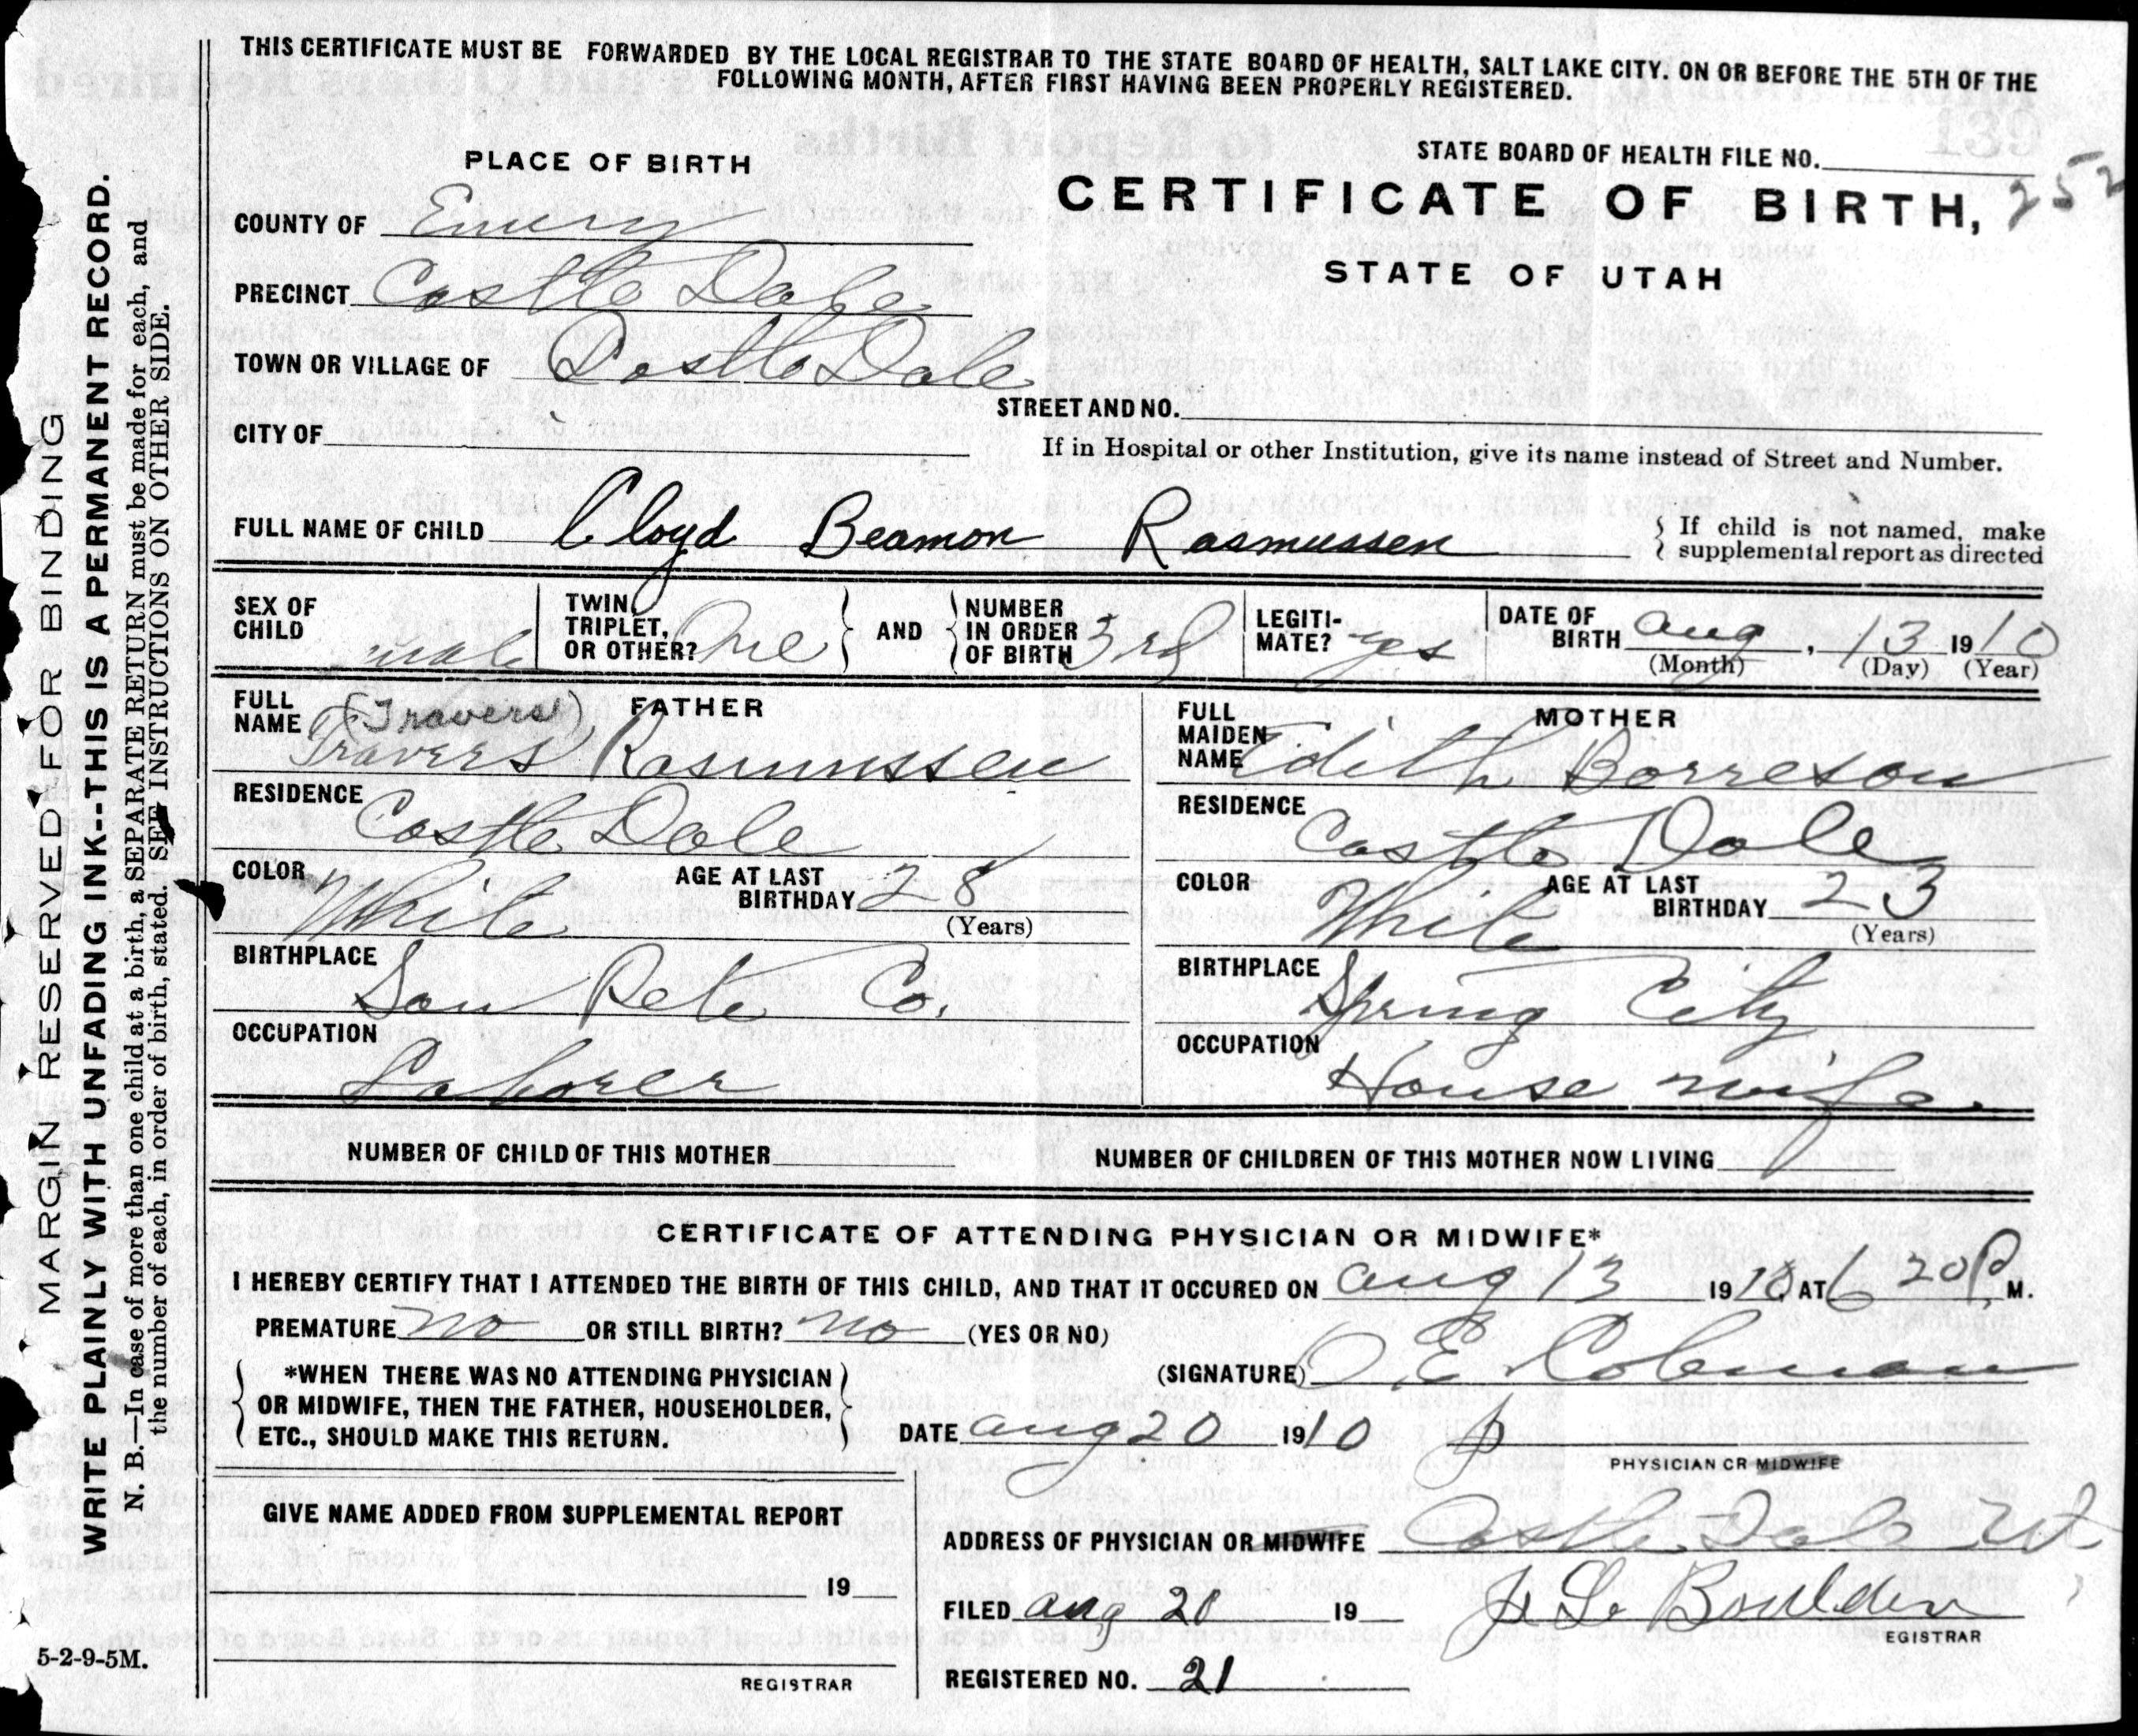 THIS CERTIFICATE MUST BE FORWARDED BY THE LOCAL REGISTRAR TO THE STATE BOARD OF HEALTH, SALT LAKE CITY. ON OR BEFORE THE 5TH OF THE
FOLLOWING MONTH, AFTER FIRST HAVING BEEN PROPERLY REGISTERED.
PLACE OF BIRTH
STATE BOARD OF HEALTH FILE NO.
CERTIFICATE OF BIRTH, 252
STATE OF UTAH
COUNTY OF Emery
PRECINCT Castle Dale
TOWN OR VILLAGE OF Castle Dale
STREET AND NO.
CITY OF
If in Hospital or other Institution, give its name instead of Street and Number.
FULL NAME OF CHILD Cloyd Beamon Rasmussen
If child is not named, make
supplemental report as directed
SEX OF CHILD male
TWIN, TRIPLET, OR OTHER? One
AND
NUMBER IN ORDER OF BIRTH 3rd
LEGITI-MATE? yes
DATE OF BIRTH Aug, 13 1910
(Month) (Day) (Year)
FATHER
FULL NAME (Travers)
Travers Rasmussen
RESIDENCE
Castle Dale
COLOR White AGE AT LAST BIRTHDAY 28
(Years)
BIRTHPLACE
San Pete Co.
OCCUPATION
Laborer
MOTHER
FULL MAIDEN NAME Edith Borreson
RESIDENCE
Castle Dale
COLOR White AGE AT LAST BIRTHDAY 23
(Years)
BIRTHPLACE
Spring City
OCCUPATION
House wife
NUMBER OF CHILD OF THIS MOTHER
NUMBER OF CHILDREN OF THIS MOTHER NOW LIVING
CERTIFICATE OF ATTENDING PHYSICIAN OR MIDWIFE*
I HEREBY CERTIFY THAT I ATTENDED THE BIRTH OF THIS CHILD, AND THAT IT OCCURED ON Aug 13 1910 AT 6 20 P. M.
PREMATURE no OR STILL BIRTH? no (YES OR NO)
*WHEN THERE WAS NO ATTENDING PHYSICIAN
OR MIDWIFE, THEN THE FATHER, HOUSEHOLDER,
ETC., SHOULD MAKE THIS RETURN.
(SIGNATURE) O. E. Coleman
DATE Aug 20 1910
PHYSICIAN OR MIDWIFE
GIVE NAME ADDED FROM SUPPLEMENTAL REPORT
19
REGISTRAR
ADDRESS OF PHYSICIAN OR MIDWIFE Castle Dale Ut
FILED Aug 20 19
Boulden
EGISTRAR
REGISTERED NO. 21
5-2-9-5M.
MARGIN RESERVED FOR BINDING
WRITE PLAINLY WITH UNFADING INK--THIS IS A PERMANENT RECORD.
N. B.—In case of more than one child at a birth, a SEPARATE RETURN must be made for each, and
the number of each, in order of birth, stated. SEE INSTRUCTIONS ON OTHER SIDE.